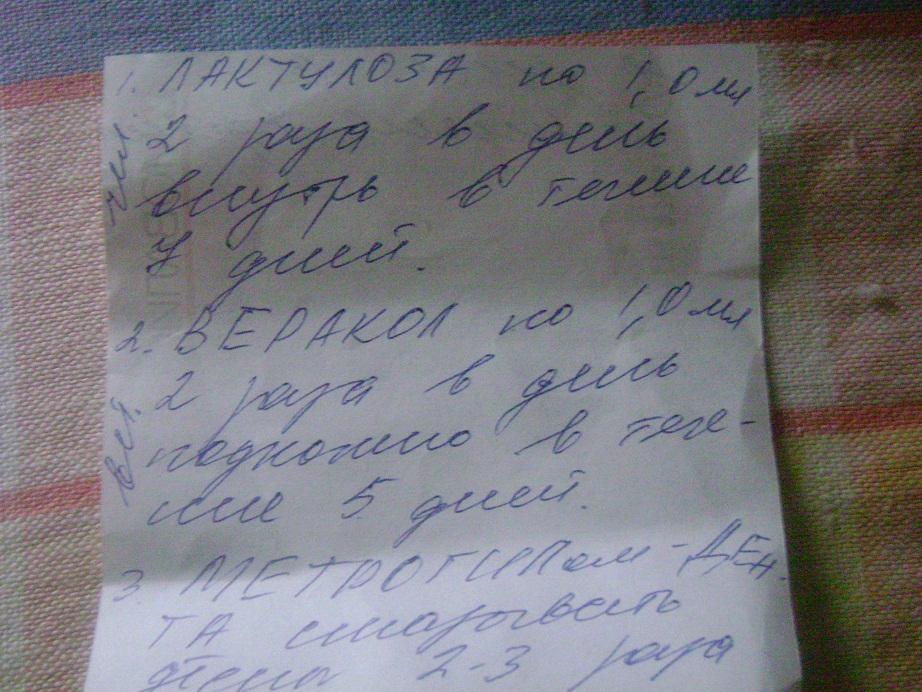 1. ЛАКТУЛОЗА по 1,0 мл
чел.
2 раза в день
внутрь в течение
7 дней.
2. ВЕРАКОЛ по 1,0 мл
вет.
2 раза в день
подкожно в тече-
ние 5 дней.
3. МЕТРОГИЛом-ДЕН-
ТА смазывать
дёсны 2-3 раза